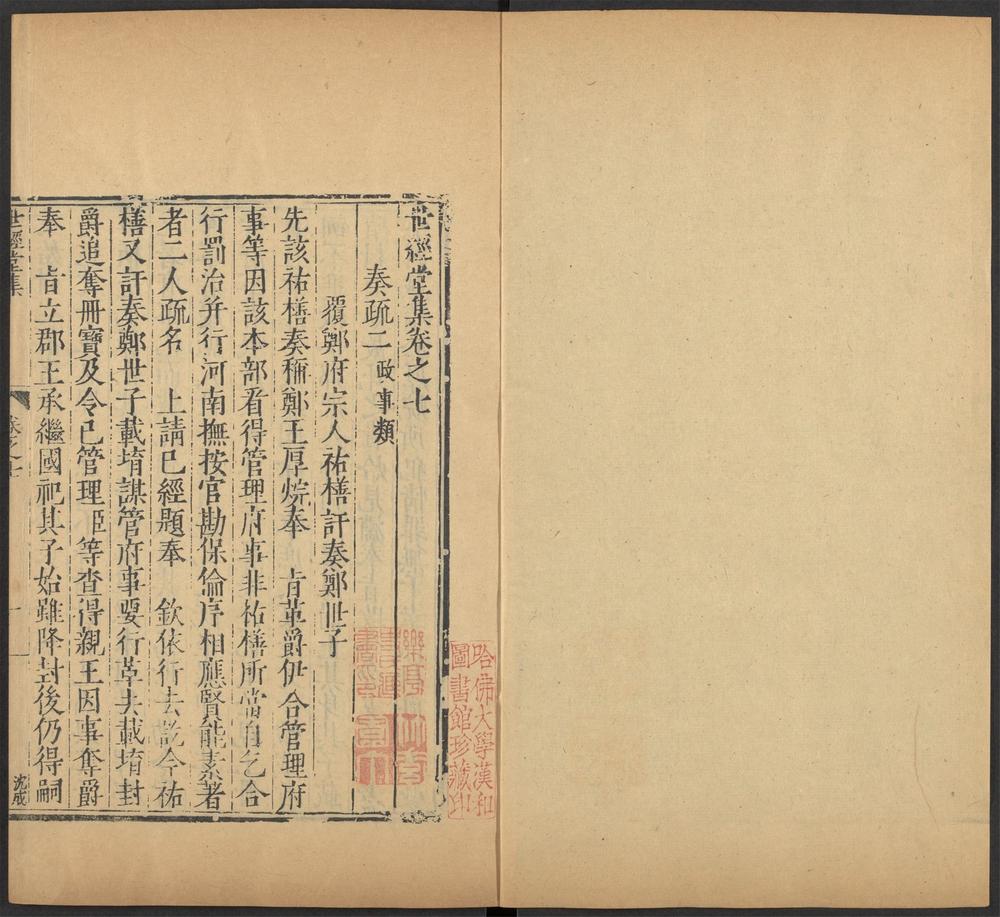 世經堂集卷之七
奏疏二 政事類
覆鄭府宗人祐橏訐奏鄭世子
先該祐橏奏稱鄭王厚烷奉 旨革爵伊合管理府
事等因該本部看得管理府事非祐橏所當自乞合
行罰治并行河南撫按官勘保倫序相應賢能素著
者二人疏名 上請已經題奉 欽依行去訖今祐
橏又訐奏鄭世子載堉謀管府事要行革去載堉封
爵追奪冊寶及令已管理 等查得親王因事奪爵
奉 旨立郡王承繼國祀其子始雖降封後仍得嗣
世經堂集
卷之七
一
沈成
哈佛大學漢和
圖書館珍藏印